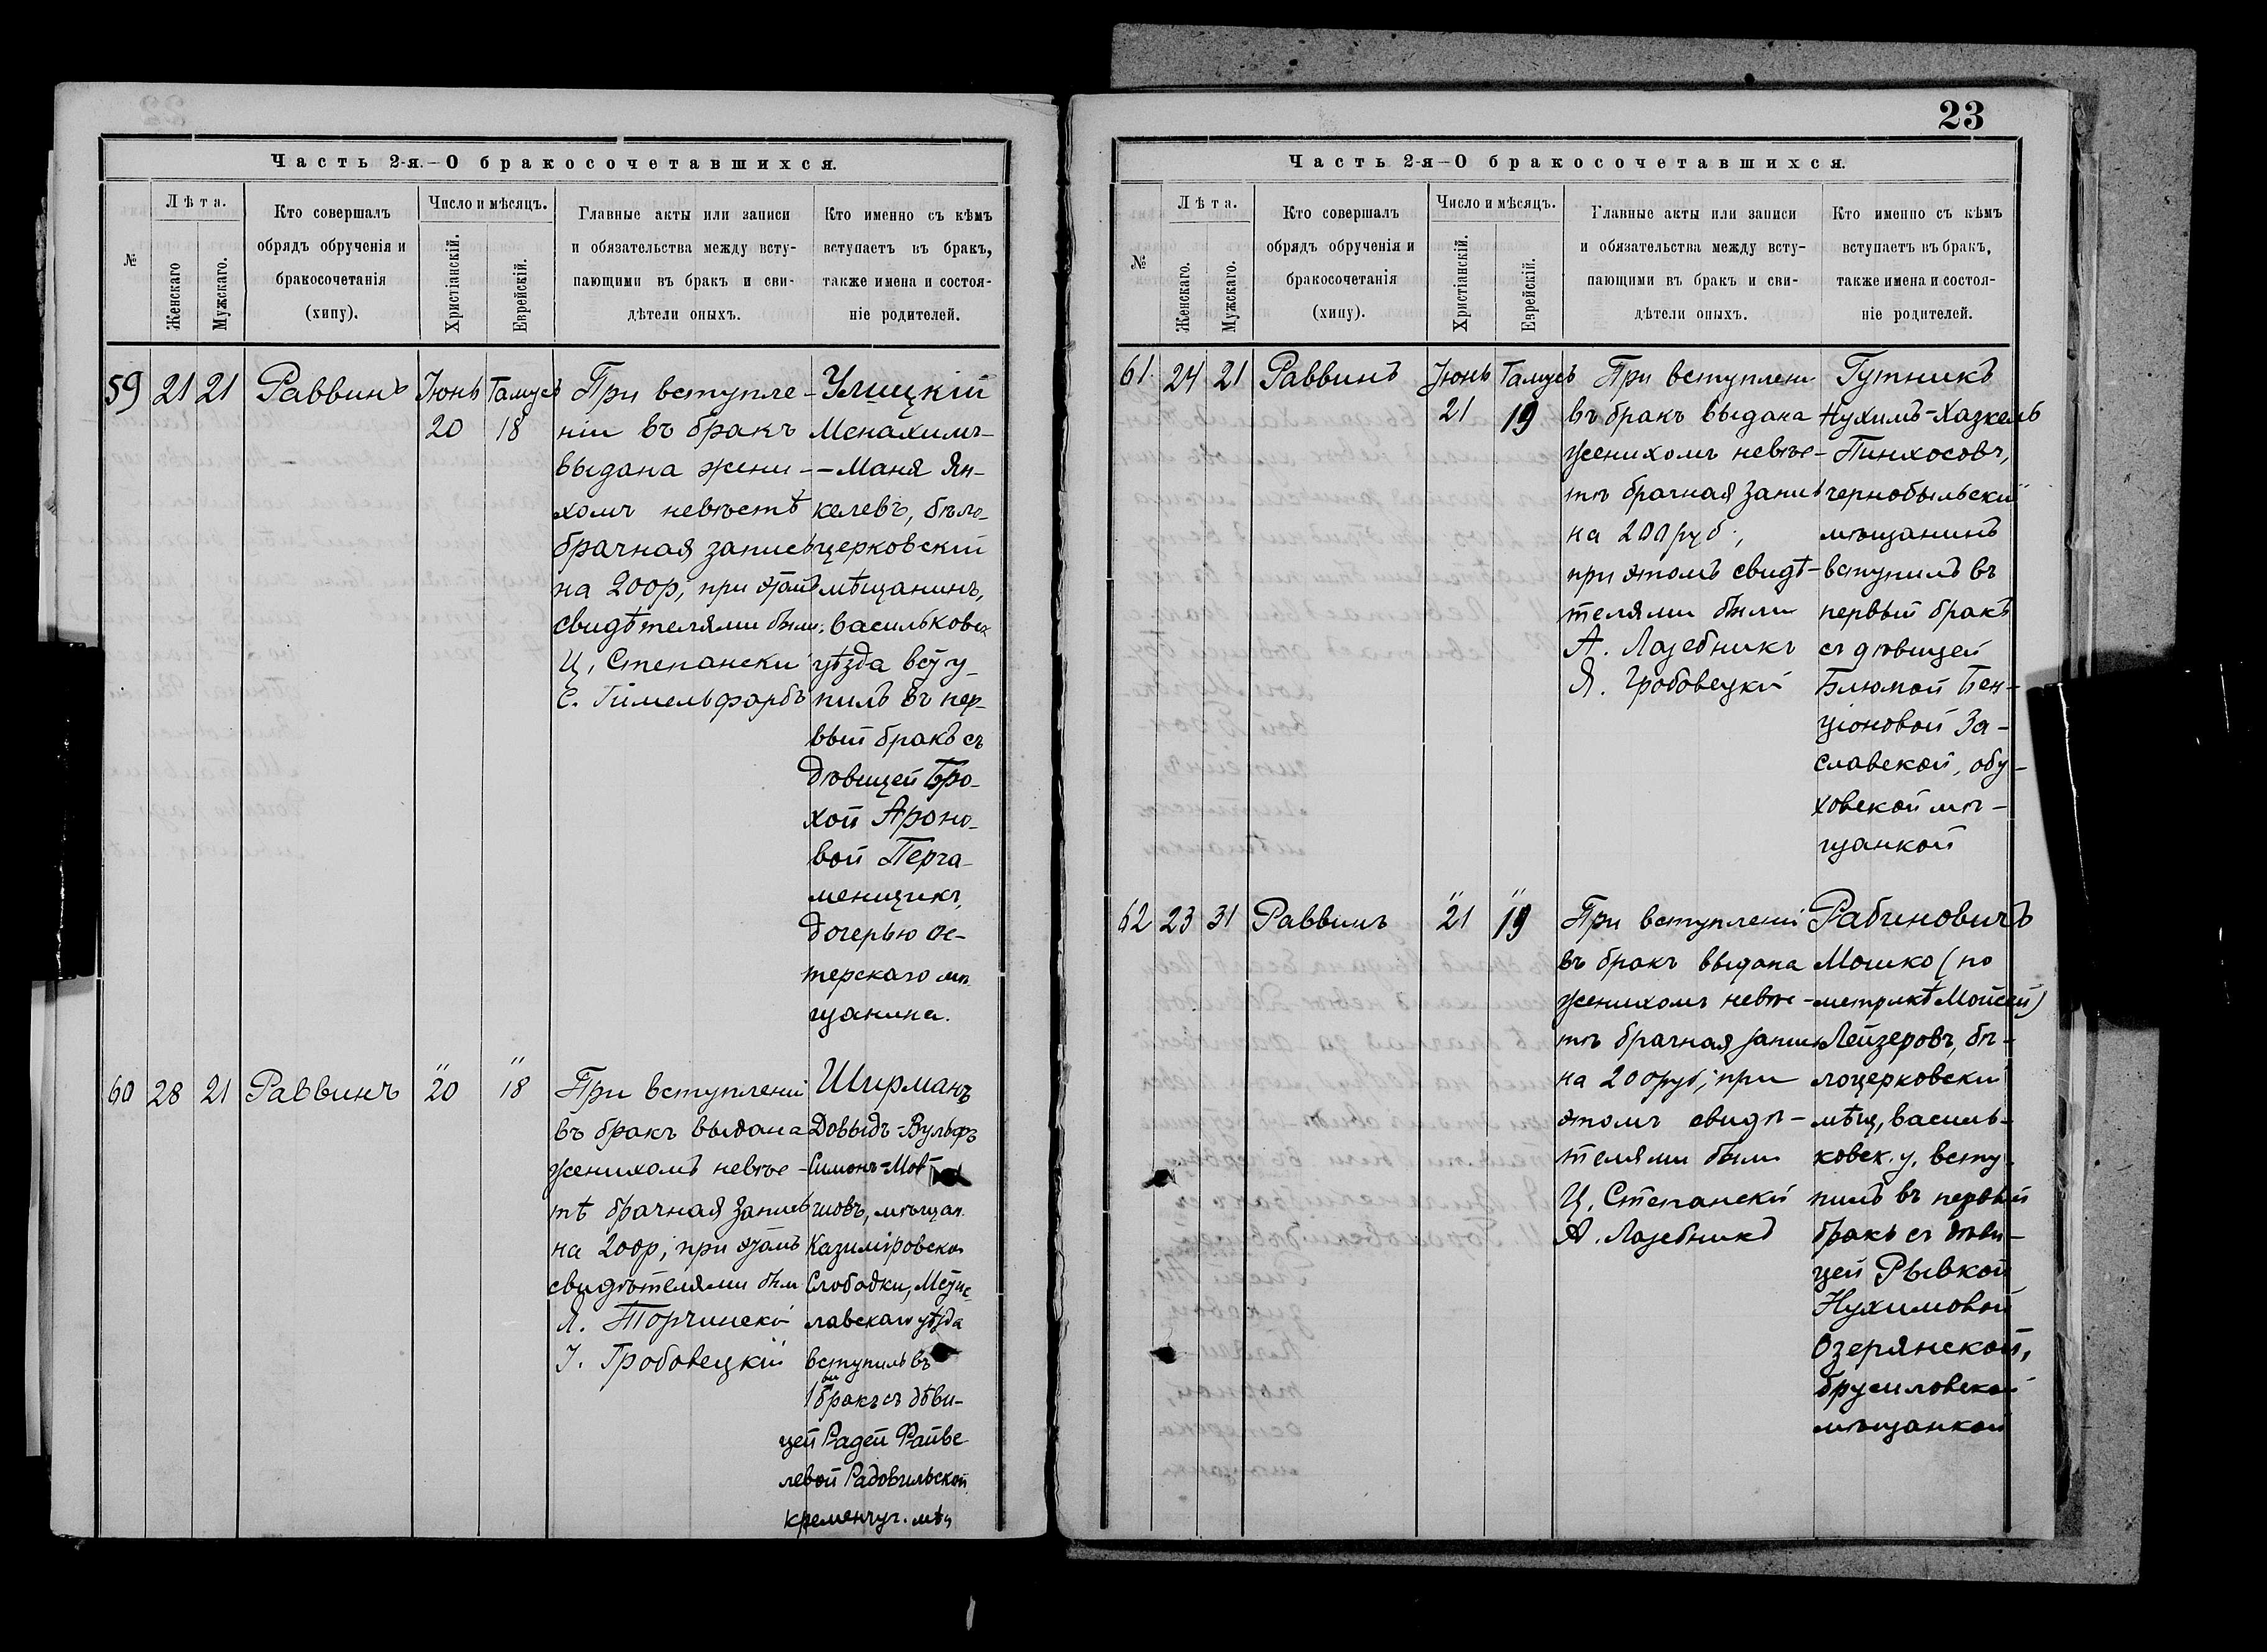 Часть 2-я.—О бракосочетавшихся.
№
Лѣта.
Женскаго
Мужскаго.
Кто совершалъ
обрядъ обрученія и
бракосочетанія
(хипу).
Число и мѣсяцъ.
Христіанскій.
Еврейскій.
Главные акты или записи
и обязательства между всту-
пающими въ бракъ и сви-
дѣтели оныхъ.
Кто именно съ кѣмъ
вступаетъ въ бракъ,
также имена и состоя-
ніе родителей.
59 21 21 Раввинъ
Іюнь
20
Тамусъ
18
При вступле-
ніи въ бракъ
выдана жени-
хомъ невѣстѣ
брачная запись
на 200р, при этомъ
свидѣтелями были:
Ц. Степански
С. Гимельфарбъ
Улицкій
Менахимъ-
-Маня Ян-
келевъ, бѣло-
церковскій
мѣщанинъ,
васильковск
уѣзда всту-
пилъ въ пер-
вый бракъ съ
дѣвицей Бро-
хой Ароно-
вой Перга-
менщикъ,
дочерью Ос-
терскаго мѣ
щанина.
60 28 21 Раввинъ
" 20
" 18
При вступленіи
въ бракъ выдана
женихомъ невѣс-
тѣ брачная запись
на 200р; при этомъ
свидѣтелями были
Я. Торчинскі
І. Гробовецкій
Ширманъ
Довыдъ-Вульфъ
Симонъ-Мов-
шовъ, мѣщан.
Казиміровско
Слободки, Мсти
славскаго уѣзда
вступилъ въ
1вы бракъ съ дѣви-
цей Радей Файве
левой Радовильской
кременчуг. мѣщ
23
Часть 2-я—О бракосочетавшихся.
№
Лѣта.
Женскаго.
Мужскаго.
Кто совершалъ
обрядъ обрученія и
бракосочетанія
(хипу).
Число и мѣсяцъ.
Христіанскій.
Еврейскій.
Главные акты или записи
и обязательства между всту-
пающими въ бракъ и сви-
дѣтели оныхъ.
Кто именно съ кѣмъ
вступаетъ въ бракъ,
также имена и состоя-
ніе родителей.
61. 24 21 Раввинъ
Іюнь
21
Тамусъ
19
При вступлени
въ бракъ выдана
женихомъ невѣс-
тѣ брачная запись
на 200 руб.,
при этомъ свидѣ-
телями были
А. Лазебникъ
Я. Гробовецкій
Гутникъ
Нухимъ-Хазкель
Пинхосовъ,
чернобыльский
мѣщанинъ
вступилъ въ
первый бракъ
съ дѣвицей
Блюмой Бен-
ціоновой За-
славской, обу-
ховской мѣ-
щанкой
62 23 31 Раввинъ
" 21
" 19
При вступленіи
въ бракъ выдана
женихомъ невѣс-
тѣ брачная запись
на 200руб; при
этомъ свидѣ-
телями были
Ц. Степанскій
А. Лазебникъ
Рабиновичъ
Мошко (по
метрикѣ Мойсей)
Лейзеровъ, бѣ-
лоцерковский
мѣщ, василь-
ковск. у. всту
пилъ въ первый
бракъ съ дѣви-
цей Рывкой
Нухимовой
Озерянской,
брусиловской
мѣщанкой